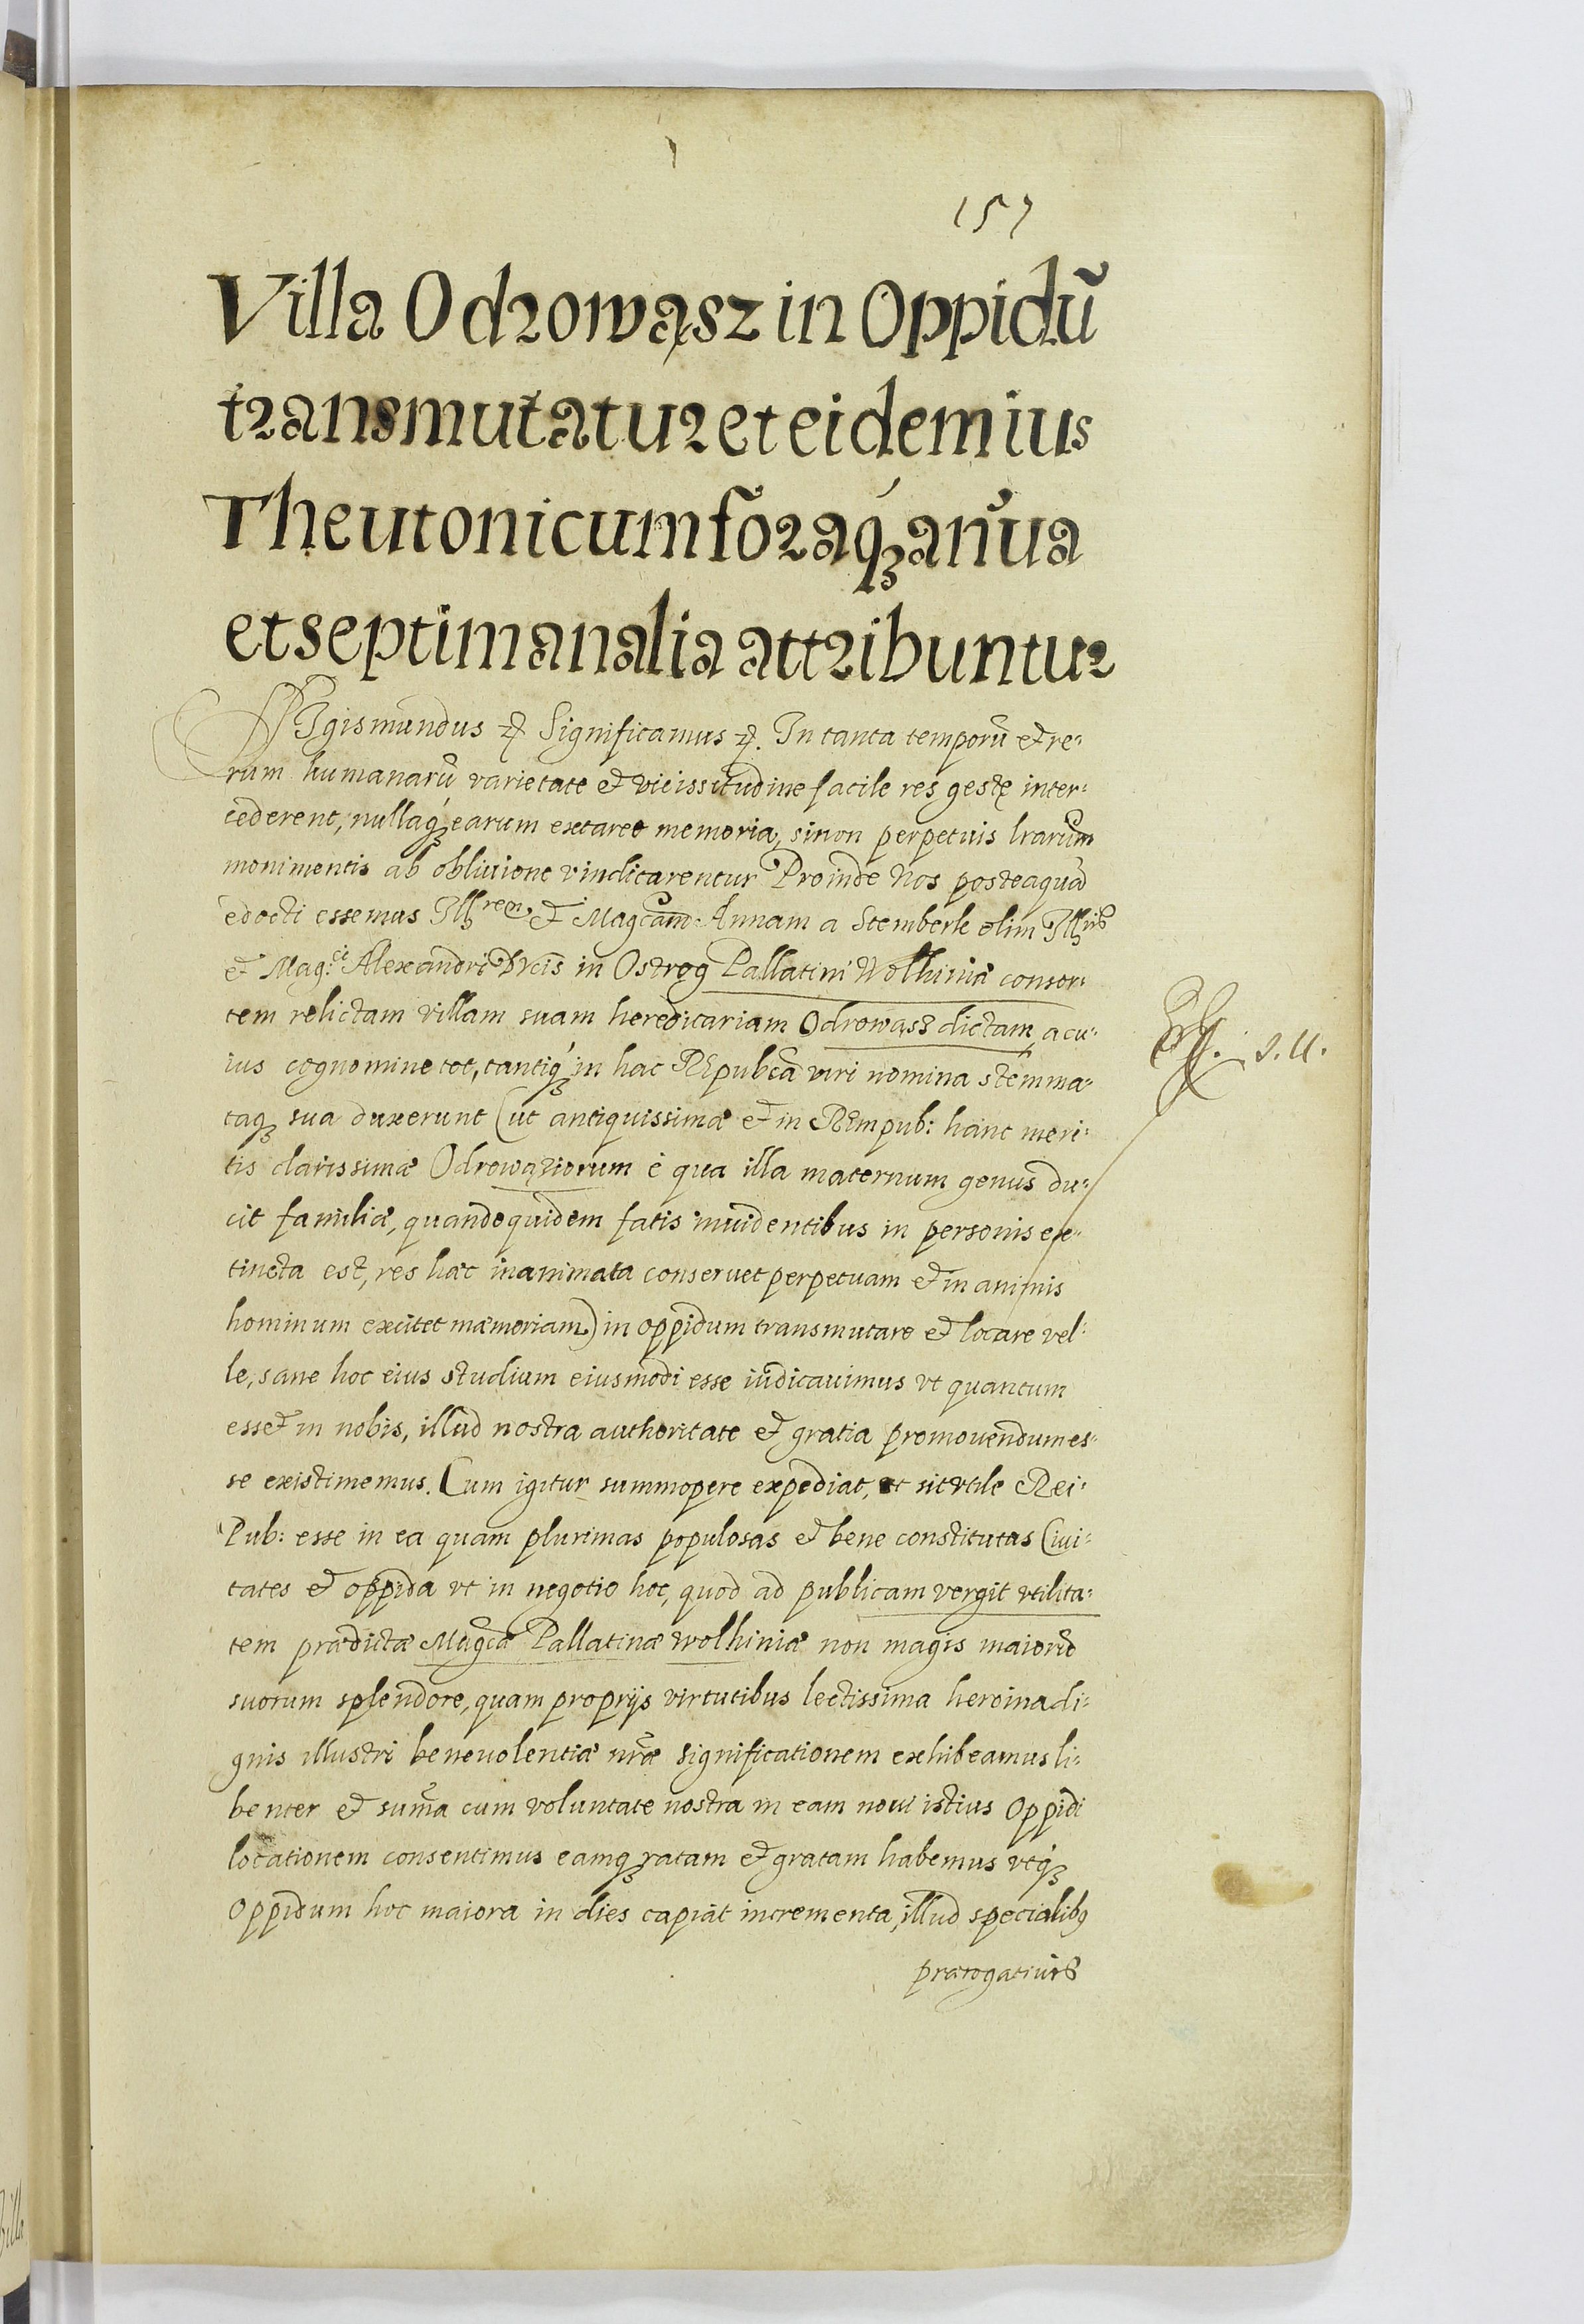 157
Villa Odrowąsz in Oppidũ
transmutatur et eidem ius
Theutonicum foraq́ꝫ anũua
et septimanalia attribuntur
SIgismundus ꝛc̃ Significamus ꝛc̃. In tanta temporũ et re-
rum humanarũ varietate et vicissitudine facile res gestę inter-
cederent, nullaq́ꝫ earum extaret memoria, si non perpetuis lrarum
monimentis ab obliuione vindicarentur Proinde Nos posteaquã
edocti essemus Illrem et Magcam Annam a Stemberk olim Illris
et Mag:ci Alexandri Dvcis in Ostrog Pallatini Wolhiniæ consor-
tem relictam villam suam hereditariam Odrowąsz dictam, a cu-
ius cognomine tot, tantiq́ꝫ in hac REpubca viri nomina stemma-
taqꝫ sua duxerunt (ut antiquissimæ et in REmpub: hanc meri-
tis clarissimæ Odrowąziorum è qua illa maternum genus du-
cit familiæ, quandoquidem fatis inuidentibus in personis ex-
tincta est, res hæc inanimata conseruet perpetuam et in animis
hominum excitet mæmoriam) in oppidum transmutare et locare vel-
le, sane hoc eius studium eiusmodi esse iudicauimus vt quantum
esset in nobis, illud nostra authoritate et gratia promouendum es-
se existimemus. Cum igitur summopere expediat, et sit vtile Rei-
Pub: esse in ea quam plurimas populosas et bene constitutas Ciui-
tates et oppida vt in negotio hoc, quod ad publicam vergit vtilita-
tem prædictæ Magcæ Pallatinæ Wolhiniæ non magis maiorũ
suorum splendore, quam proprijs virtutibus lectissima heroina di-
gnis illustri beneuolentiæ nr̃æ significationem exhibeamus li-
benter et sum̃a cum voluntate nostra in eam noui istius Oppidi
locationem consentimus eamqꝫ ratam et gratam habemus vtq́ꝫ
Oppidum hoc maiora in dies capiat incrementa, illud specialibꝰ
prærogatiuis